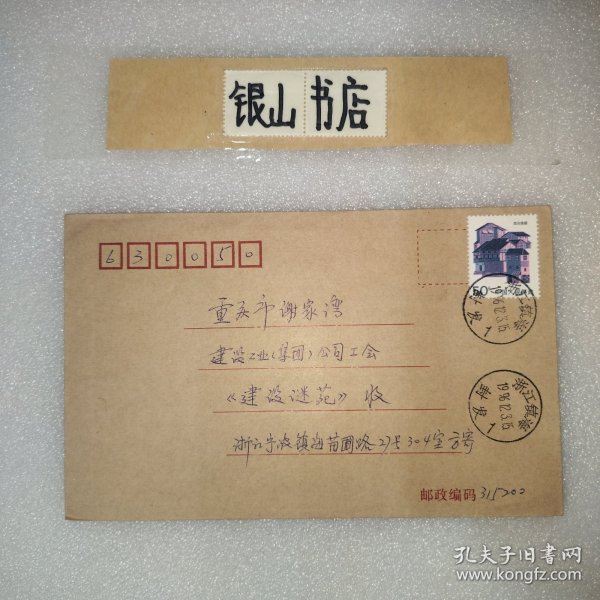 银山书店
630050
50
重庆市谢家湾
建设工业(集团)公司工会
《建设谜苑》收
浙江宁波镇海苗圃路27号304室方寄
浙江镇海
1996.12.3.15
浙江镇海
1996.12.3.15
邮政编码 315200
孔夫子旧书网
www.kongfz.com